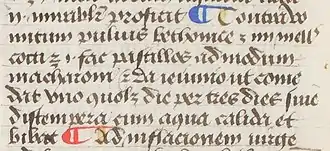 mirabilr proficit ¶ Contra do
mitum puluis bethonice z in mell
cocti z fac pastillos ad modum
macharom z da ieiuno ut come
dat uno quolz die per tres dies siue
distempera cum aqua calida et
bibat ¶ Ad inflacionem uirge